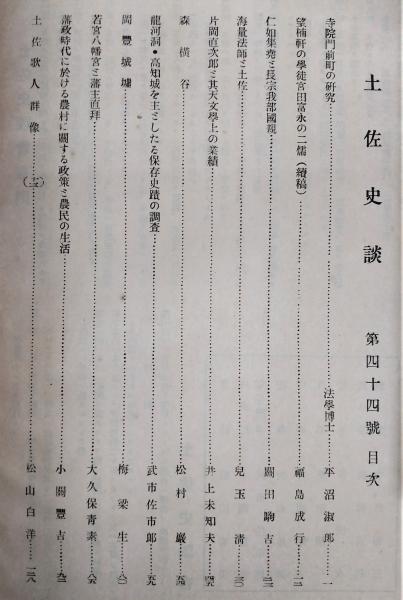 土佐史談 第四十四號 目次
寺院門前町の研究……法學博士 平沼淑郎…一
望楠軒の學徒宮田富永の二儒(續稿)……福島成行…一二
仁如集堯と長宗我部國親……關田駒吉…二二
海量法師と土佐……兒玉清…三〇
片岡直次郎と其天文學上の業績……井上未知夫…四六
森橫谷……松村巖…五四
龍河洞・高知城を主としたる保存史蹟の調査……武市佐市郎…五九
岡豐城墟……梅梁生…八〇
若宮八幡宮と藩主直拜……大久保青素…八六
藩政時代に於ける農村に關する政策と農民の生活……小關豐吉…九三
土佐歌人群像……(三)……松山白洋…一二八